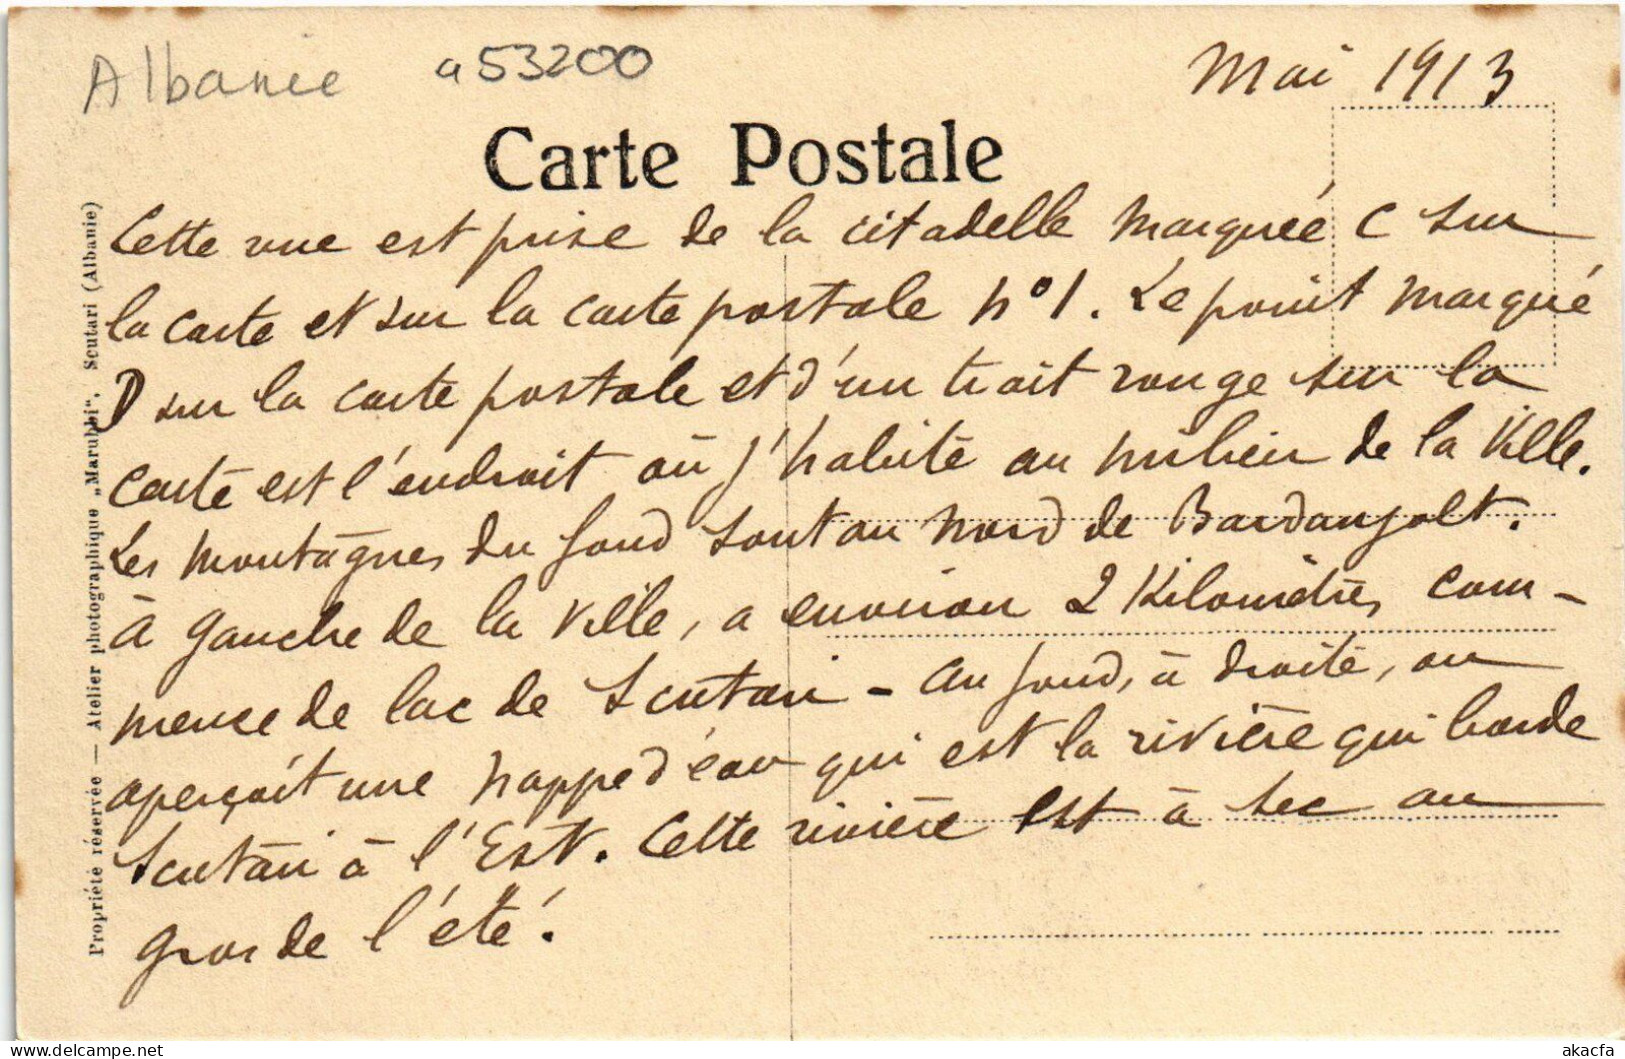 Albanie a53200
Mai 1913
Carte Postale
Cette vue est prise de la citadelle marquée C sur
la carte et sur la carte postale n°1. Le point marqué
D sur la carte postale et d'un trait rouge sur la
carte est l'endroit où j'habite au milieu de la Ville.
Les montagnes du fond sont au nord de Bardanjolt.
à gauche de la Ville, a environ 2 Kilomètres com-
mence de lac de Scutari - au fond, à droite, on
aperçoit une nappe d'eau qui est la rivière qui borde
Scutari à l'Est. Cette rivière est à sec au
gros de l'été.
Propriété réservée — Atelier photographique „Marubbi“, Scutari (Albanie)
akacfa